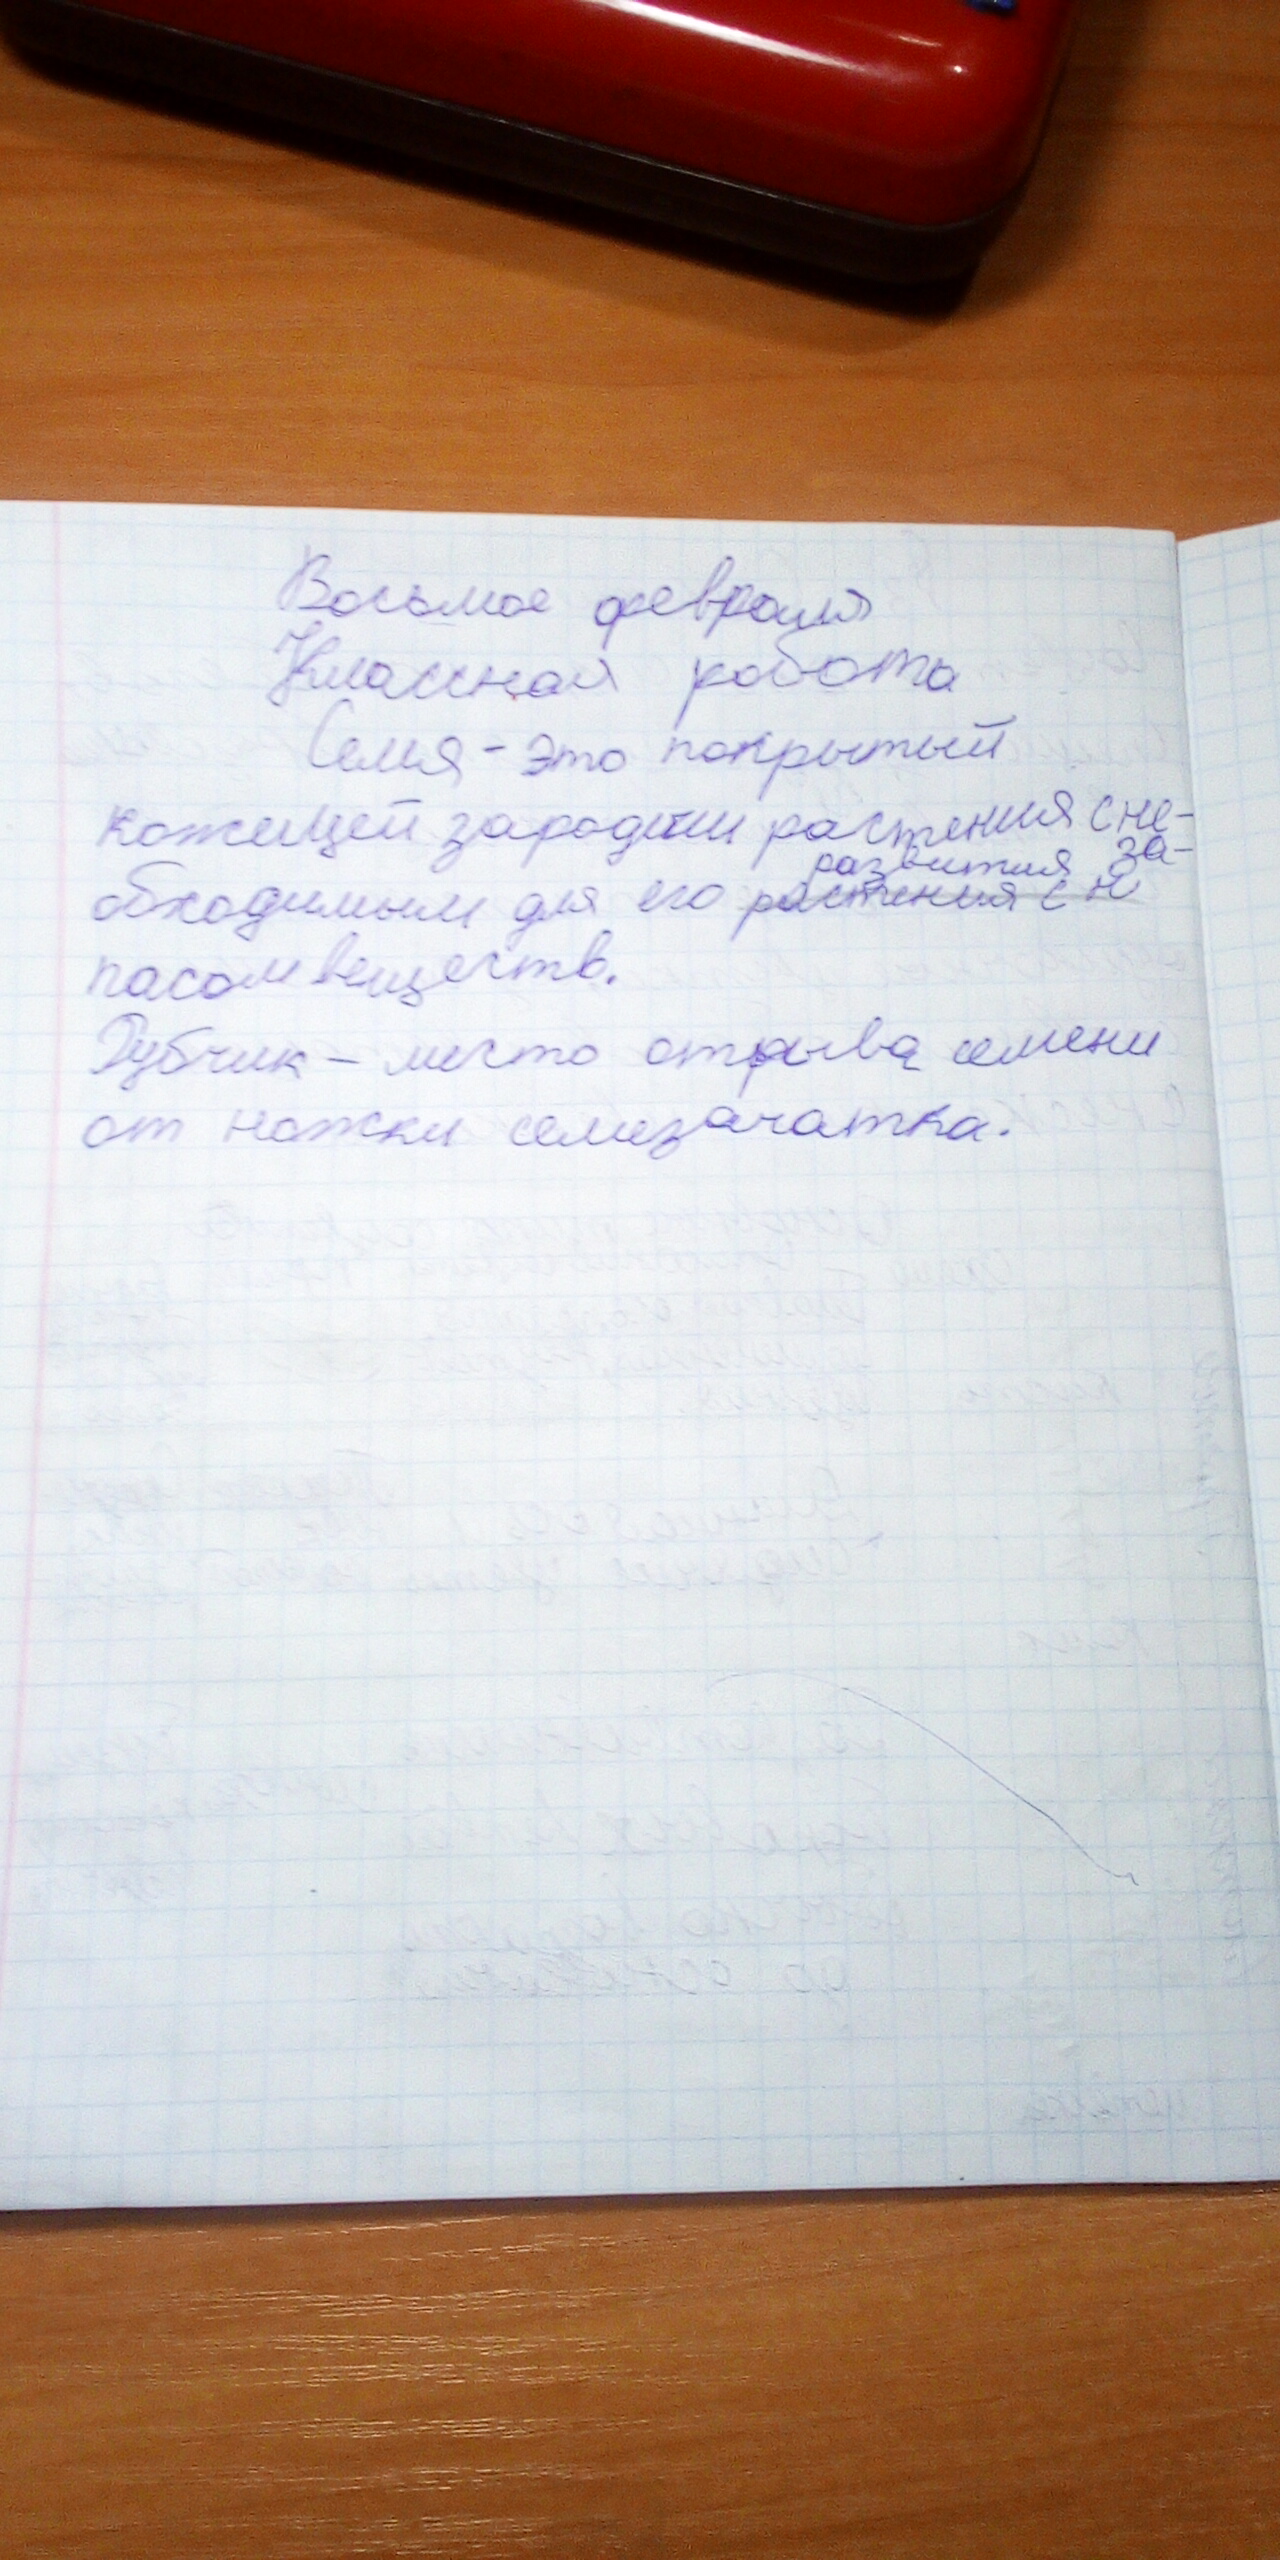 Восьмое февраля
Классная работа
Семя - это покрытый
кожецей зародыш растения с не-
обходимым для его развития за-
растения с н
пасом веществ.
Рубчик - место отрыва семени
от ножки семязачатка.